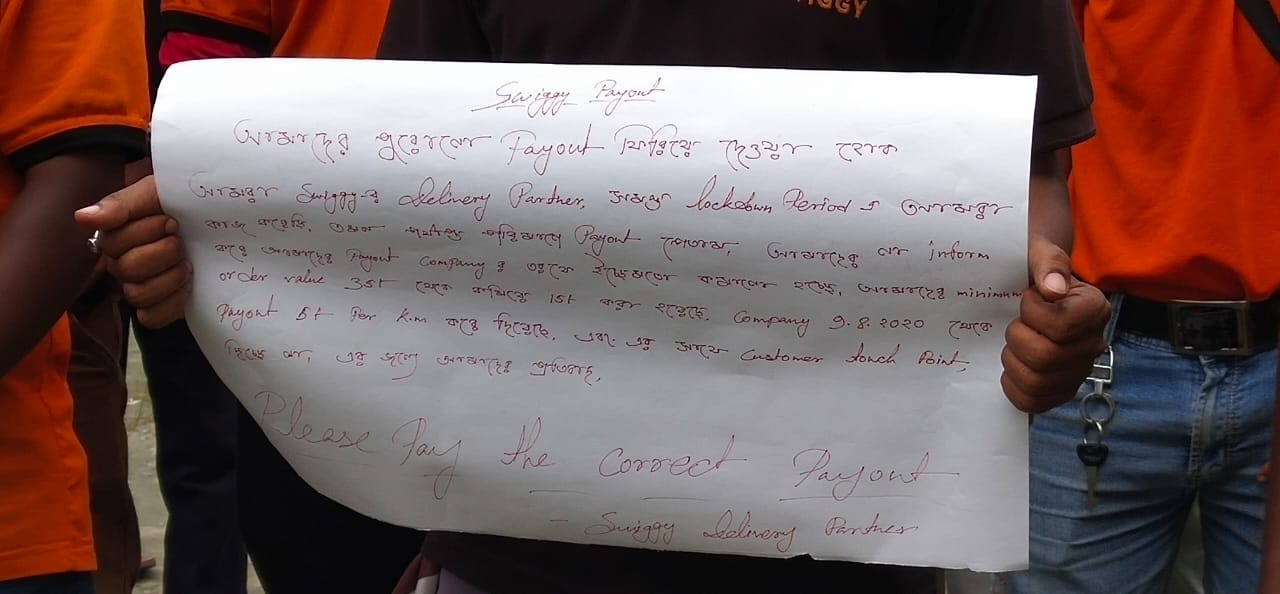 IGGY
Swiggy Payout
আমাদের পুরোনো Payout ফিরিয়ে দেওয়া হোক
আমরা Swiggy-র Delivery Partner, সমস্ত lockdown Period এ আমরা
কাজ করেছি, তখন পর্যাপ্ত পরিমাণে Payout পেতাম, আমাদের না inform
করে আমাদের Payout Company র তরফে ইচ্ছেমতো কমানো হচ্ছে, আমাদের minimum
order value 35t থেকে কমিয়ে 15t করা হয়েছে. Company 9.8.2020 থেকে
Payout 5t Per K.m করে দিয়েছে, এবং এর সাথে Customer touch Point,
দিচ্ছে না, এর জন্যে আমাদের প্রতিবাদ,
Please Pay the correct Payout
- Swiggy Delivery Partner